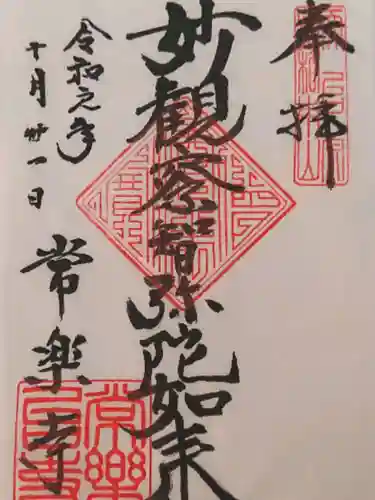 奉拝
妙観察智弥陀如来
令和元年
十月卅一日
常楽寺